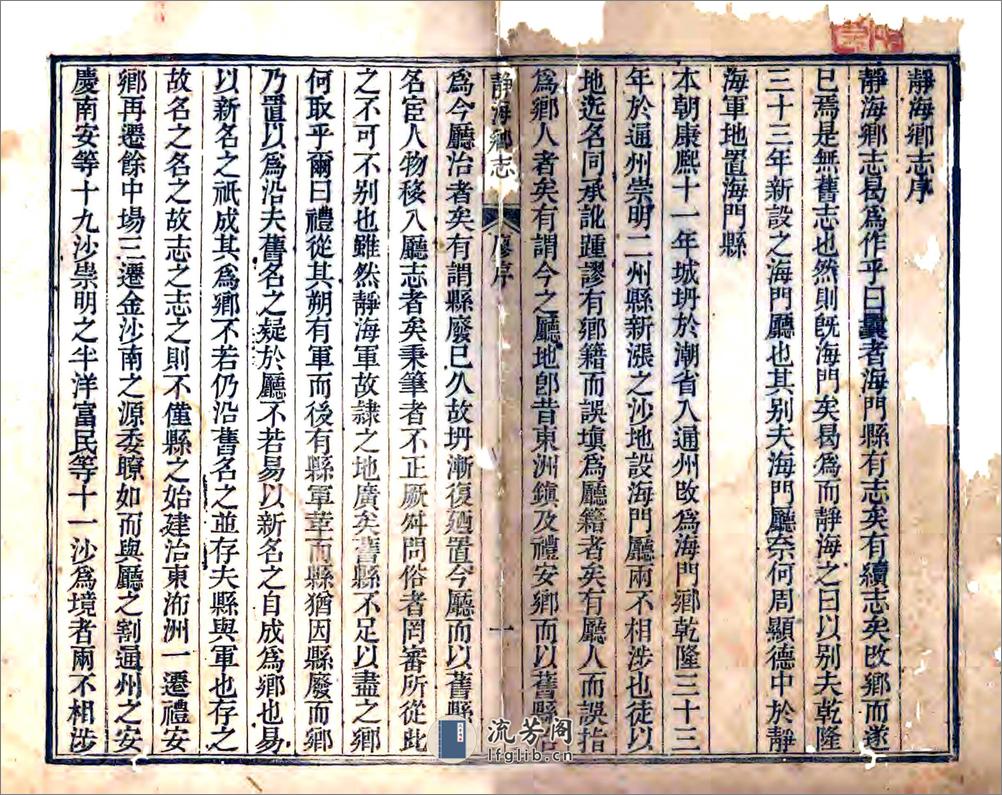 靜海鄉志序
靜海鄉志曷爲作乎曰曩者海門縣有志矣有續志矣改鄉而遂
已焉是無舊志也然則旣海門矣曷爲而靜海之曰以別夫乾隆
三十三年新設之海門廳也其別夫海門廳奈何周顯德中於靜
海軍地置海門縣
本朝康熙十一年城坍於潮省入通州改爲海門鄉乾隆三十三
年於通州崇明二州縣新漲之沙地設海門廳兩不相涉也徒以
地迩名同承訛踵謬有鄉籍而誤塡爲廳籍者矣有廳人而誤指
爲鄉人者矣有謂今之廳地卽昔東洲鎭及禮安鄉而以舊縣
靜海鄉志
廖序
一
爲今廳治者矣有謂縣廢已久故坍漸復廼置今廳而以舊縣
名宦人物移入廳志者矣秉筆者不正厥舛問俗者罔審所從此
之不可不別也雖然靜海軍故隷之地廣矣舊縣不足以盡之鄉
何取乎爾曰禮從其朔有軍而後有縣軍革而縣猶因縣廢而鄉
乃置以爲沿夫舊名之疑於廳不若易以新名之自成爲鄉也易
以新名之祇成其爲鄉不若仍沿舊名之並存夫縣與軍也存之
故名之名之故志之志之則不僅縣之始建治東洲一遷禮安
鄉再遷餘中場三遷金沙南之源委瞭如而與廳之割通州之安
慶南安等十九沙崇明之半洋富民等十一沙爲境者兩不相涉
流芳阁
lfglib.com